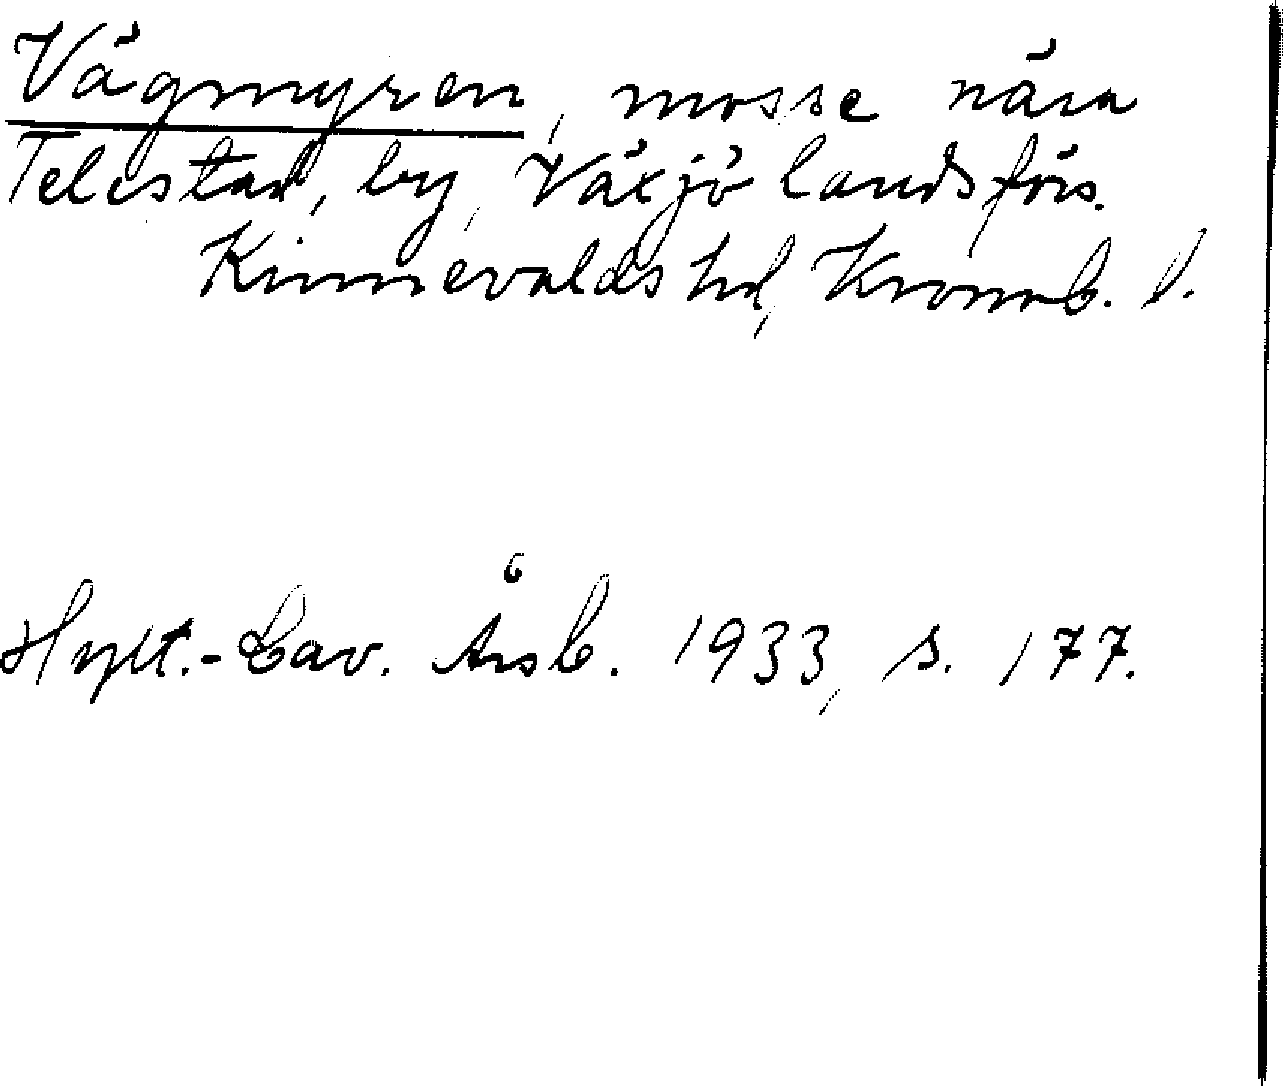 Vägmyren, mosse nära
Telestad, by, Växjö landsförs.
Kinnevalds hd, Kronob. l.
Hylt.-Cav. Årsb. 1933, s. 177.